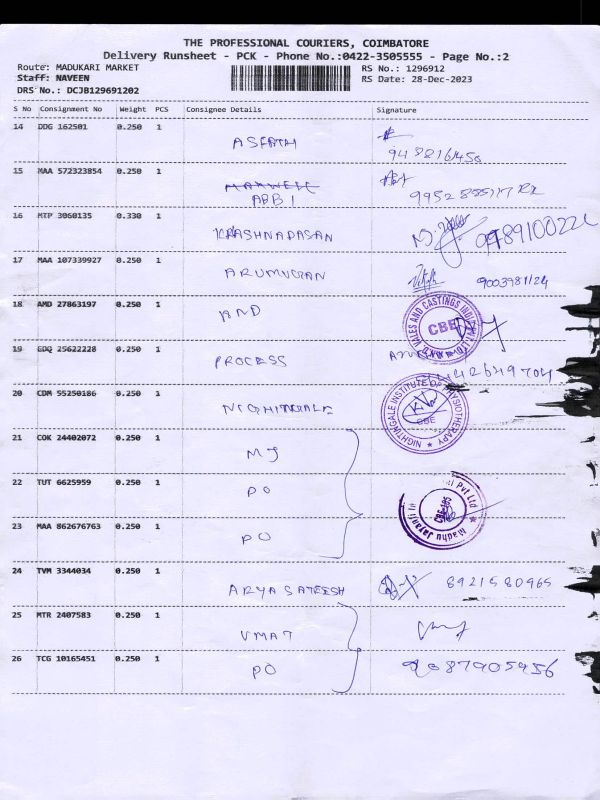 THE PROFESSIONAL COURIERS, COIMBATORE
Delivery Runsheet - PCK - Phone No.:0422-3505555 - Page No.:2
Route: MADUKARI MARKET RS No.: 1296912
Staff: NAVEEN RS Date: 28-Dec-2023
DRS No.: DCJB129691202
S No Consignment No Weight PCS Consignee Details Signature
14 DDG 162501 0.250 1 ASFATH
15 MAA 572323854 0.250 1 ABBI
16 MTP 3060135 0.330 1 KRASHNADASAN
17 MAA 107339927 0.250 1 ARUMUGAN 9003981124
18 AMD 27863197 0.250 1 AND
VALES AND CASTINGS CBE
19 EDQ 25622228 0.250 1 PROCESS
20 CDM 55250186 0.250 1 NIGHINGALE
NIGHTINGALE INSTITUTE OF PHYSIOTHERAPY CBE
21 COK 24402072 0.250 1 MJ
22 TUT 6625959 0.250 1 PO
Madhu Jayanti Pvt Ltd
23 MAA 862676763 0.250 1 PO
24 TVM 3344034 0.250 1 ARYA SATEESH 8921580965
25 MTR 2407583 0.250 1 UMAT
26 TCG 10165451 0.250 1 PO 9087905956